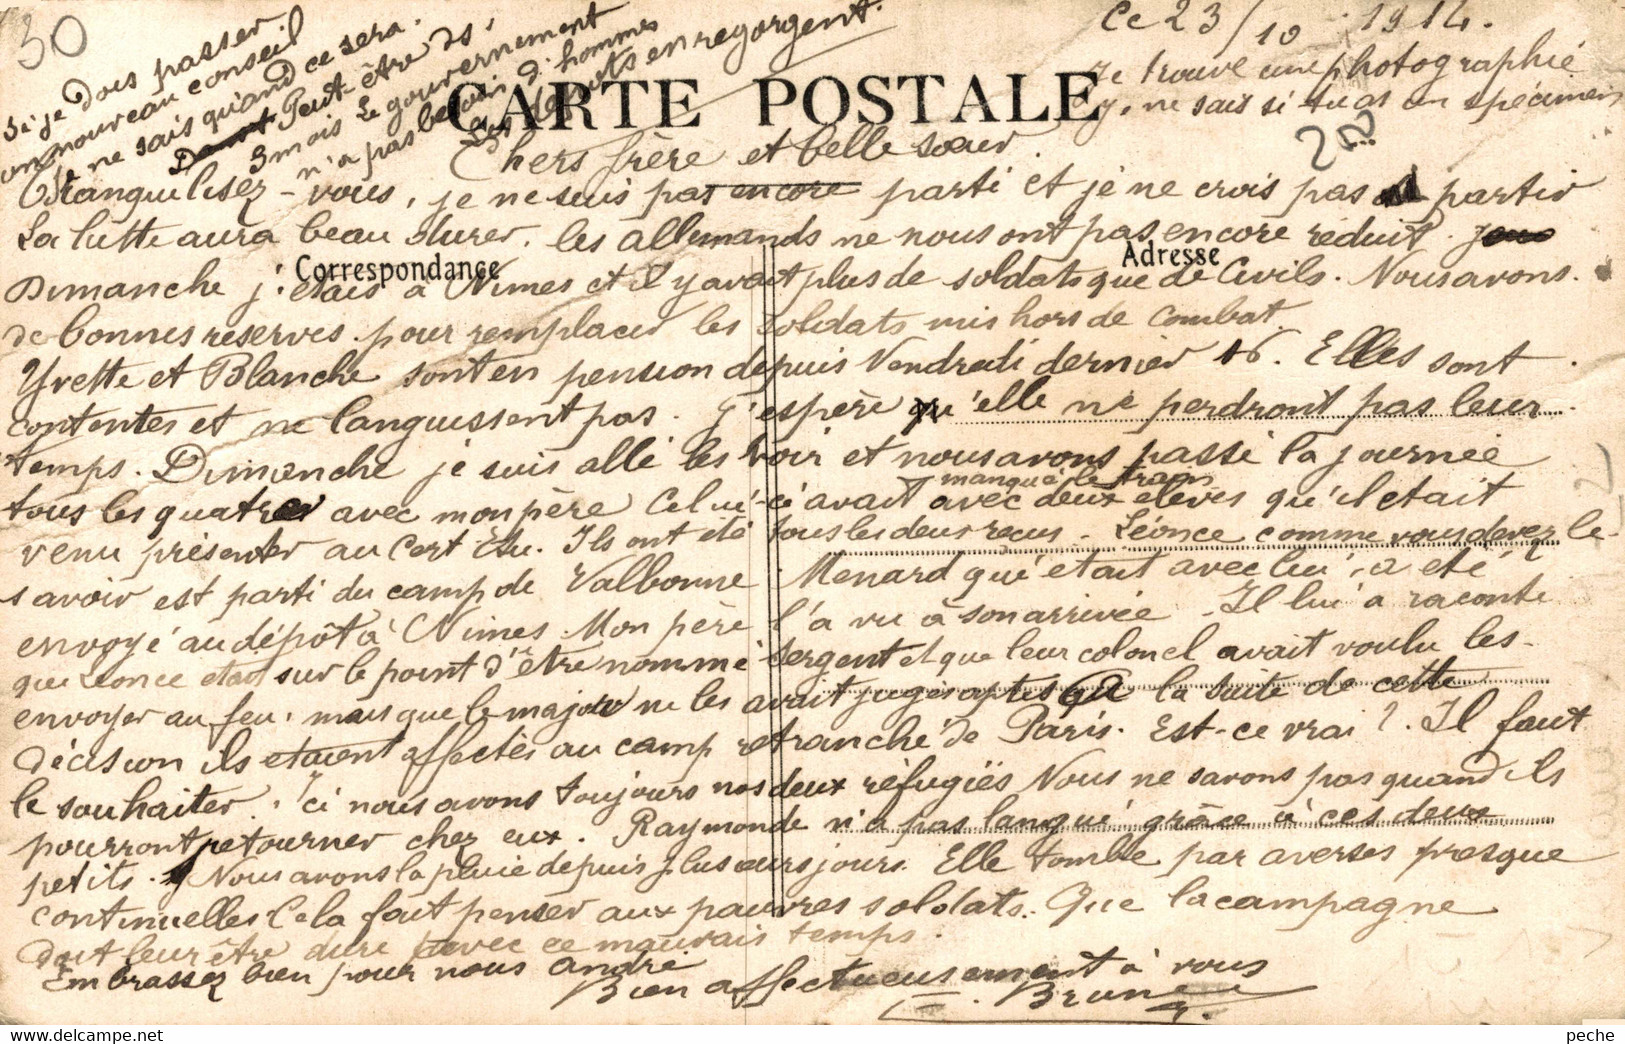 30
Ce 23/10 1914.
Je trouve une photographie
j'y, ne sais si tu as un spécimen
Si je dois passer
un nouveau conseil
je ne sais quand ce sera.
Peut-être ds
3 mois Le gouvernement
n'a pas besoin d'hommes
Les depots en regorgent.
CARTE POSTALE
Chers frère et belle sœur.
Tranquilisez-vous, je ne suis pas encore parti et je ne crois pas partir
La lutte aura beau durer, les allemands ne nous ont pas encore réduit.
Correspondance
Adresse
Dimanche j'étais à Nimes et il y avait plus de soldats que de Civils. Nous avons.
de bonnes reserves pour remplacer les soldats mis hors de combat.
Yvette et Blanche sont en pension depuis Vendredi dernier 16. Elles sont
contentes et ne languissent pas. J'espère qu'elle ne perdront pas leur
temps. Dimanche je suis allé les voir et nous avons passé la journée
manqué le train
tous les quatre avec mon père Celui-ci avait avec deux élèves qu'il était
venu présenter au Cert Etu. Ils ont été tous les deux reçus. Léonce comme vous devez le
savoir est parti du camp de Valbonne Menard qui était avec lui, a été
envoyé au dépôt à Nimes. Mon père l'a vu à son arrivée. Il lui a raconté
que Léonce etait sur le point d'être nommé sergent et que leur colonel avait voulu les
envoyer au feu, mais que le major ne les avait jugés aptes la suite de cette
décision ils etaient affectés au camp retranché de Paris. Est-ce vrai? Il faut
le souhaiter. Ici nous avons toujours nos deux réfugiés Nous ne savons pas quand ils
pourront retourner chez eux. Raymonde n'a pas langui grâce à ces deux
petits. Nous avons la pluie depuis plusieurs jours. Elle tombe par averses presque
continuelles. Cela fait penser aux pauvres soldats. Que la campagne
doit leur être dure avec ce mauvais temps.
Embrassez bien pour nous André
Bien affectueusement à vous
E. Brun
peche